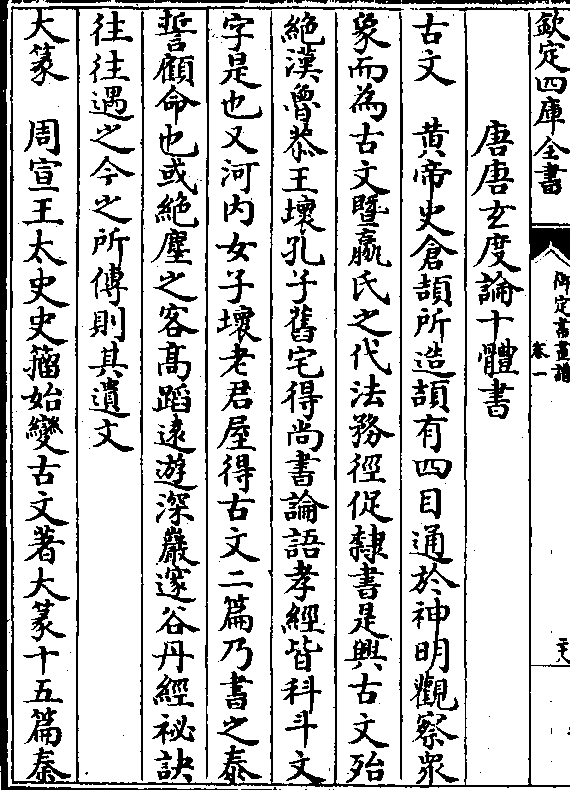 欽定四庫全書
御定書畫譜
卷一
唐唐玄度論十體書
古文　黃帝史倉頡所造頡有四目通於神明觀察衆
象而為古文暨嬴氏之代法務徑促隸書是興古文殆
絶漢魯恭王壞孔子舊宅得尚書論語孝經皆科斗文
字是也又河内女子壞老君屋得古文二篇乃書之泰
誓顧命也或絶塵之客高蹈逺遊深巖邃谷丹經祕訣
往往遇之今之所傳則其遺文
大篆　周宣王太史史籀始變古文著大篆十五篇秦